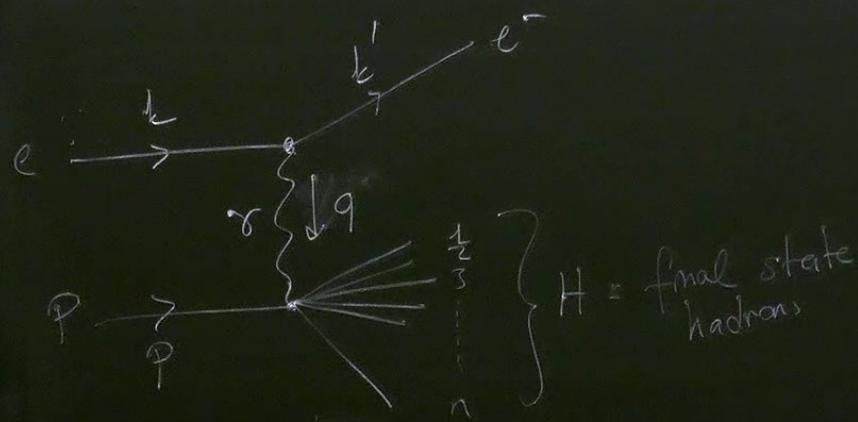 k'
e⁻
k
e
γ
q
1
2
3
P
P
n
H = final state
hadrons